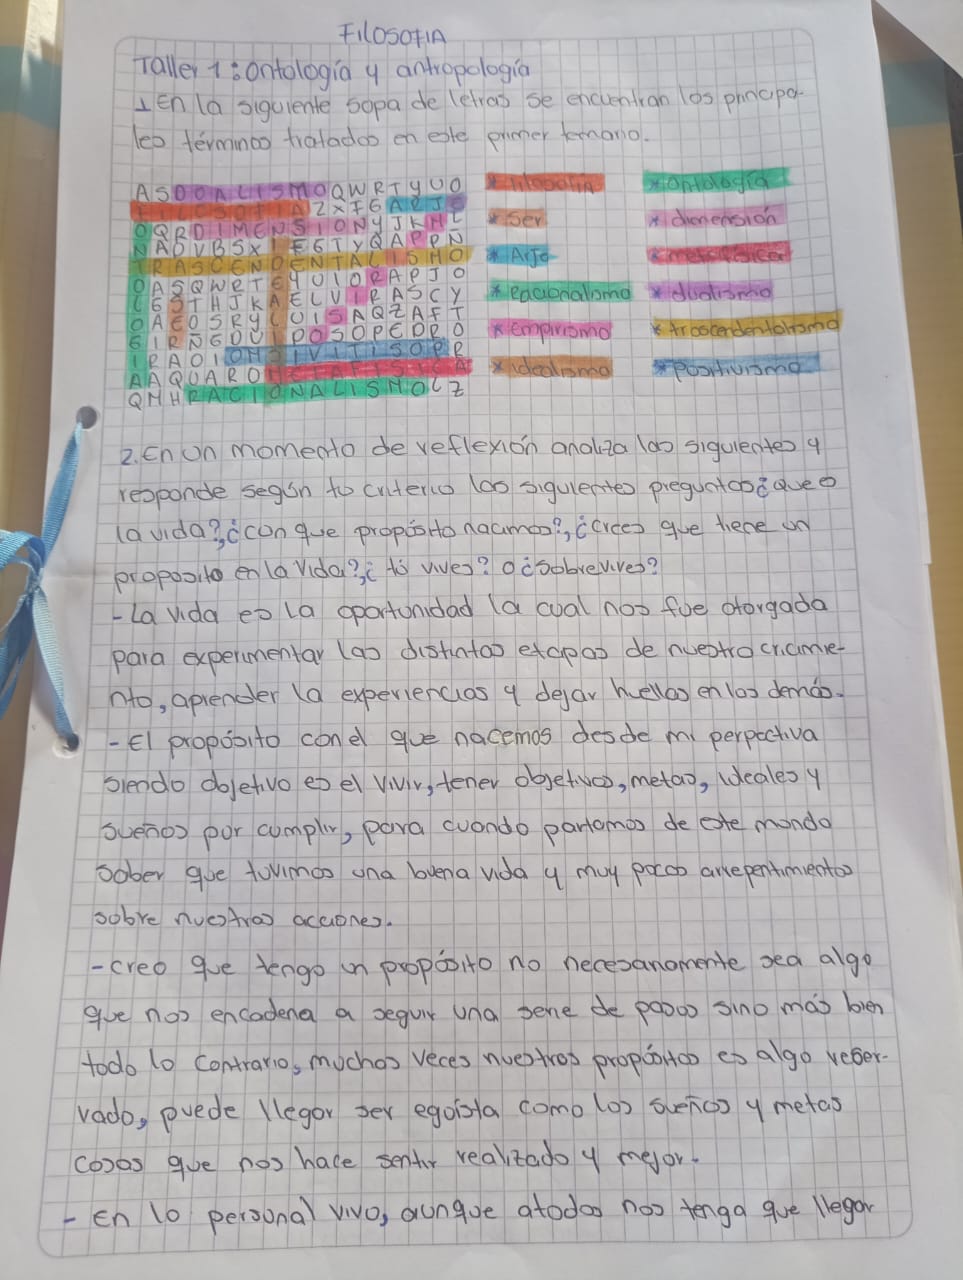 FILOSOFIA
Taller 1: Ontología y antropología
1 En la siguiente sopa de letras se encuentran los principa-
les términos tratados en este primer temario.
ASDUALISMOQWRTYUO * filosofía * Ontología
FILOSOFIAZXFGARJE
OQRDIMENSIONYJKHL * Ser * dimensión
NADVBSXIFGTYQAPPÑ
TRASCENDENTALISMO * Arje * metafísica
OASQWRTEYUIORAPJO
LESTHJKAELVIRASCY * Racionalismo * dualismo
OAEOSRYLUISAQZAFT
GIRÑEDUIPOSOPEDRO * Empirismo * trascendentalismo
IRAOIOMSIVITISOPR
AAQUAROMETAFISICA * idealismo * positivismo
QMHRACIONALISMOLZ
2. En un momento de reflexión analiza las siguientes y
responde según tu criterio las siguientes preguntas ¿que es
la vida?, ¿con que propósito nacimos?, ¿crees que tiene un
proposito en la vida?, ¿ tú vives? o ¿sobrevives?
- La vida es la oportunidad la cual nos fue otorgada
para experimentar las distintas etapas de nuestro cricimie-
nto, aprender la experiencias y dejar huellas en los demás.
- El propósito con el que nacemos desde mi perpectiva
siendo objetivo es el vivir, tener objetivos, metas, ideales y
sueños por cumplir, para cuando partamos de este mundo
saber que tuvimos una buena vida y muy pocos arrepentimientos
sobre nuestras acciones.
- creo que tengo un propósito no necesariamente sea algo
que nos encadena a seguir una serie de pasos sino más bien
todo lo contrario, muchas veces nuestros propósitos es algo reser-
vado, puede llegar ser egoista como los sueños y metas
cosas que nos hace sentir realizado y mejor.
- En lo personal vivo, aunque atodos nos tenga que llegar